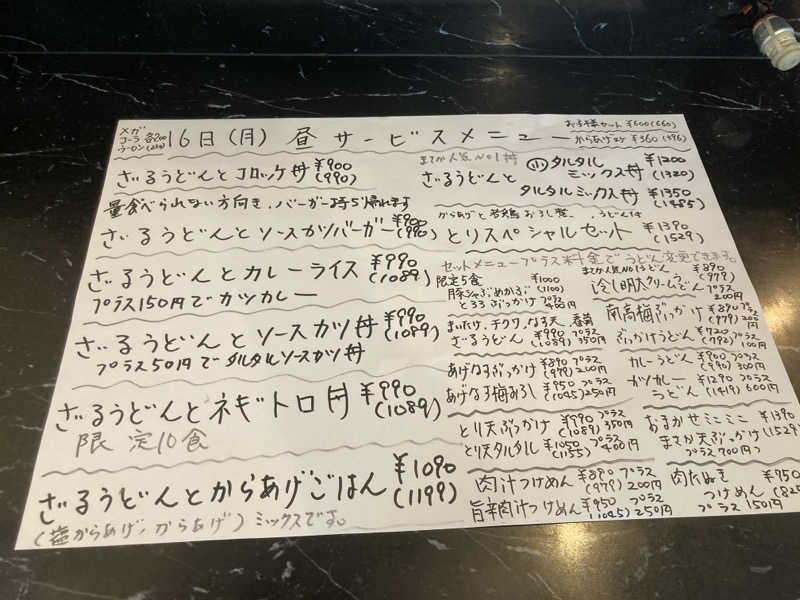 メガ
コーラ 各200
ウーロン(220)
16日(月) 昼サービスメニュー
お子様セット ¥600(660)
からあげ2ケ ¥360(396)
ざるうどんとコロッケ丼 ¥900
(990)
量食べられない方向き、バーガー持ち帰れます
ざるうどんとソースカツバーガー ¥900
(990)
ざるうどんとカレーライス ¥990
(1089)
プラス150円でカツカレー
ざるうどんとソースカツ丼 ¥990
(1089)
プラス50円でタルタルソースカツ丼
ざるうどんとネギトロ丼 ¥990
(1089)
限定10食
ざるうどんとからあげごはん ¥1090
(1199)
(塩からあげ、からあげ)ミックスです。
まさか人気No1丼
ざるうどんと
小タルタル
ミックス丼 ¥1200
(1320)
タルタルミックス丼 ¥1350
(1485)
からあげと若鶏おろし
うどん付
とりスペシャルセット ¥1390
(1529)
セットメニュープラス料金でうどん変更できる。
限定5食
豚しゃぶめかぶ ¥1000
(1100)
とろろぶっかけ プラス
400円
まいたけ、チクワ、なす天、春菊
ざるうどん ¥990
(1089) プラス
350円
あげなすぶっかけ ¥890
(979) プラス
200円
あげなす梅おろし ¥950
(1045) プラス
250円
とり天ぶっかけ ¥990
(1089) プラス
350円
とり天タルタル ¥1050
(1155) プラス
400円
肉汁つけめん ¥890
(979) プラス
200円
旨辛肉汁つけめん ¥950
(1045) プラス
250円
まさか人気No1うどん
冷し明太クリームうどん ¥890
(979)
プラス
200円
南高梅ぶっかけ ¥890
(979) プラス
200円
ぶっかけうどん ¥720
(792) プラス
100円
カレーうどん ¥900
(990) プラス
300円
カツカレー
うどん ¥1290
(1419) プラス
600円
おまかせミニミニ
まさか天ぶっかけ ¥1390
(1529)
プラス700円)
肉たぬき
つけめん ¥750
(825
プラス 150円